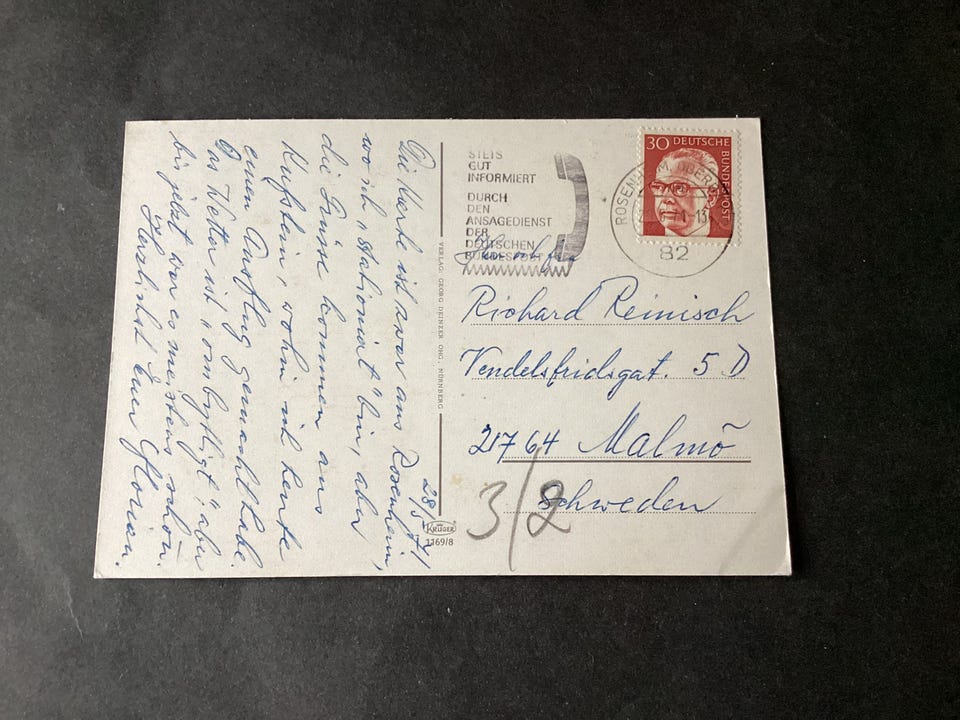 28/5 71
Die Karte ist zwar aus Rosenheim,
wo ich "stationiert" bin, aber
die Grüsse kommen aus
Kufstein, wohin ich heute
einen Ausflug gemacht habe.
Das Wetter ist "ombytligt"; aber
bis jetzt war es meistens schön.
Herzlichst Euer Florian.
VERLAG: GEORG DEINZER OHG, NÜRNBERG
KRÜGER
1169/8
STETS
GUT
INFORMIERT
DURCH
DEN
ANSAGEDIENST
DER
DEUTSCHEN
BUNDESPOST
ROSENHEIM, OBERB
71-13
82
30 DEUTSCHE
BUNDESPOST
Richard Reinisch
Vendelsfridsgat. 5 D
21764 Malmö
Schweden
3/2